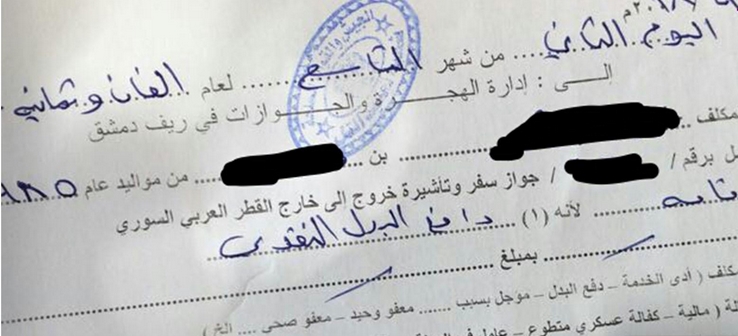 اليوم الثاني .... من شهر التاسع ........ لعام الفان وثمانية
الـــى : إدارة الهجـــرة والجـــوازات في ريف دمشق
مكلف ........ بن ........ من مواليد عام ١٩٨٥
برقم / / جواز سفر وتأشيرة خروج إلى خارج القطر العربي السوري
لأنه (١) دافع البدل النقدي
بمبلغ
مكلف ( أدى الخدمة – دفع البدل – مؤجل بسبب ....... معفو وحيد – معفو صحي .... الخ )
( مالية – كفالة عسكري متطوع – عامل في